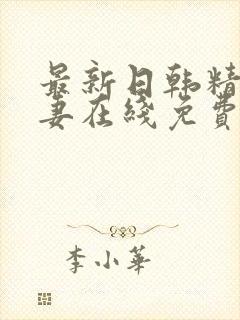 最新日韩精
妻在綫免費
李小華